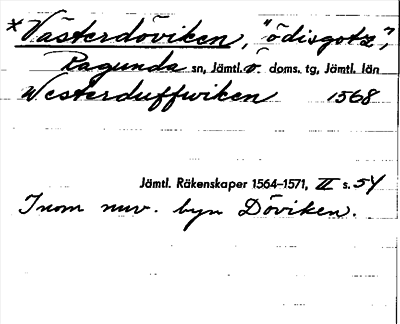 *Västerdöviken, "ödisgotz",
Ragunda sn, Jämtl. ö. doms. tg, Jämtl. län
Westerduffwiken 1568
Jämtl. Räkenskaper 1564–1571, II s. 54
Inom nuv. byn Döviken.